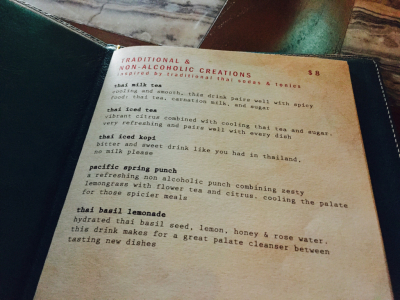 TRADITIONAL &
NON-ALCOHOLIC CREATIONS $8
inspired by traditional thai tonics & teas
thai milk tea
cooling and smooth, this drink pairs well with spicy
food. thai tea, carnation milk, and sugar
thai iced tea
vibrant citrus combined with cooling thai tea and sugar.
very refreshing and pairs well with every dish
thai iced kopi
bitter and sweet drink like you had in thailand.
no milk please
pacific spring punch
a refreshing non alcoholic punch combining zesty
lemongrass with flower tea and citrus. cooling the palate
for those spicier meals
thai basil lemonade
hydrated thai basil seed, lemon, honey & rose water.
this drink makes for a great palate cleanser between
tasting new dishes